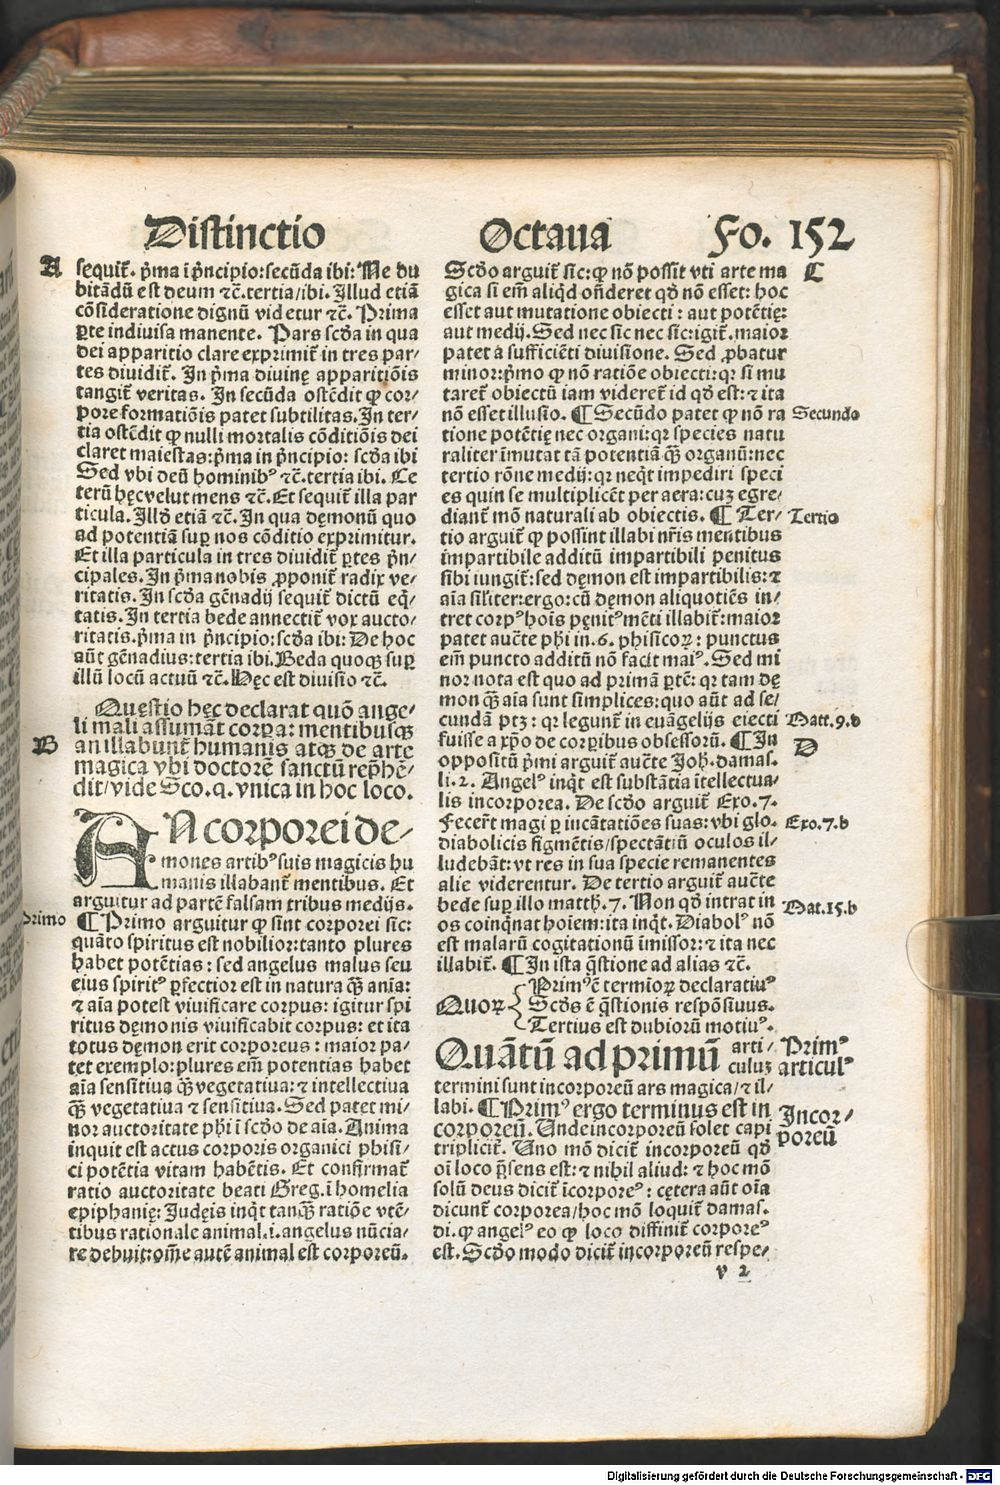 Distinctio Octaua Fo. 152
A
sequit̃. p̃ma i p̃ncipio: secūda ibi: Ne du
bitādū est deum ⁊c̃. tertia/ibi. Illud etiā
cōsideratione dignū videtur ⁊c̃. Prima
ꝑte indiuisa manente. Pars scd̃a in qua
dei apparitio clare exprimit̃ in tres par/
tes diuidit̃. In p̃ma diuinę apparitiōis
tangit̃ veritas. In secūda ostēdit ꝙ cor/
pore formatiōis patet subtilitas. In ter/
tia ostēdit ꝙ nulli mortalis cōditiōis dei
claret maiestas: p̃ma in p̃ncipio: scd̃a ibi
Sed vbi deū hominibꝰ ⁊c̃. tertia ibi. Ce
terū hęc velut mens ⁊c̃. Et sequit̃ illa par
ticula. Illd̃ etiā ⁊c̃. In qua dęmonū quo
ad potentiā suꝑ nos cōditio exprimitur.
Et illa particula in tres diuidit̃ ꝑtes p̃n/
cipales. In p̃ma nobis ꝓponit̃ radix ve/
ritatis. In scd̃a gēnadij sequit̃ dictū eq̃/
tatis. In tertia bede annectit̃ vox aucto/
ritatis. p̃ma in p̃ncipio: scd̃a ibi: De hoc
aūt gēnadius: tertia ibi. Beda quoqꝫ suꝑ
illū locū actuū ⁊c̃. Hęc est diuisio ⁊c̃.
Quęstio hęc declarat quō ange/
li mali assumāt corꝑa: mentibusqꝫ
B
an illabunt̃ humanis atqꝫ de arte
magica vbi doctorē sanctū rep̃hē/
dit/vide Sco. q. vnica in hoc loco.
AN corporei de/
mones artibꝰ suis magicis hu
manis illabant̃ mentibus. Et
arguitur ad partē falsam tribus medijs.
Primo
¶ Primo arguitur ꝙ sint corporei sic:
quāto spiritus est nobilior: tanto plures
habet potētias: sed angelus malus seu
eius spiritꝰ ꝑfectior est in natura q̃ꝫ anīa:
⁊ aīa potest viuificare corpus: igitur spi
ritus dęmonis viuificabit corpus: et ita
totus dęmon erit corporeus: maior pa/
tet exemplo: plures em̄ potentias habet
aīa sensitiua q̃ꝫ vegetatiua: ⁊ intellectiua
q̃ꝫ vegetatiua ⁊ sensitiua. Sed patet mi/
nor auctoritate phi i scd̃o de aīa. Anima
inquit est actus corporis organici phisi/
ci potētia vitam habētis. Et confirmat̃
ratio auctoritate beati Greg. i homelia
epiphanię: Judęis inq̃t tanq̃ꝫ ratiōe vtē/
tibus rationale animal .i. angelus nūcia/
re debuit: om̄e autē animal est corporeū.
Scd̃o arguit̃ sic: ꝙ nō possīt vti arte ma
C
gica si em̄ aliq̃d on̄deret qd̃ nō esset: hoc
esset aut mutatione obiecti: aut potētię:
aut medij. Sed nec sic nec sic: igit̃. maior
patet a sufficiēti diuisione. Sed ꝓbatur
minor: p̃mo ꝙ nō ratiōe obiecti: qꝛ si mu
taret̃ obiectū iam videret̃ id qd̃ est: ⁊ ita
nō esset illusio. ¶ Secūdo patet ꝙ nō ra
Secundo
tione potētię nec organi: qꝛ species natu
raliter īmutat tā potentiā q̃ꝫ organū: nec
tertio rōne medij: qꝛ neq̃t impediri speci
es quin se multiplicēt per aera: cuꝫ egre/
diant̃ mō naturali ab obiectis. ¶ Ter/
Tertio
tio arguit̃ ꝙ possint illabi nr̃is mentibus
impartibile additū impartibili penitus
sibi iungit̃: sed dęmon est impartibilis: ⁊
aīa sil̃iter: ergo: cū dęmon aliquotiēs in/
tret corpꝰ hoīs pęnitꝰ mēti illabit̃: maior
patet aucte phi in .6. phisicoꝝ: punctus
em̄ puncto additū nō facit maiꝰ. Sed mi
nor nota est quo ad primā ꝑtē: qꝛ tam dę
mon q̃ꝫ aīa sunt simplices: quo aūt ad se/
cundā ptꝫ: qꝛ legunt̃ in euāgelijs eiecti
Matt. 9. d
fuisse a xp̄o de corꝑibus obsessorū. ¶ In
D
oppositū p̃mi arguit̃ aucte Joh̄. damas.
li. 2. Angelꝰ inq̃t est substātia ītellectua/
lis incorporea. De scd̃o arguit̃ Exo. 7.
Fecerūt magi ꝑ incātatiōes suas: vbi glo.
Exo. 7. b
diabolicis figmētis/spectātiū oculos il/
ludebāt: vt res in sua specie remanentes
alie viderentur. De tertio arguit̃ aucte
bede suꝑ illo matth. 7. Non qd̃ intrat in
Mat. 15. b
os coinq̃nat hoīem: ita inq̃t. Diabolꝰ nō
est malarū cogitationū īmissor: ⁊ ita nec
illabit̃. ¶ In ista q̃stione ad alias ⁊c̃.
Quoꝝ
Primꝰ ē termioꝝ declaratiuꝰ
Scd̃s ē q̃stionis respōsiuus.
Tertius est dubiorū motiuꝰ.
Quātū ad primū arti/
culuꝫ
Primꝰ
articulꝰ
termini sunt incorporeū ars magica/⁊ il/
labi. ¶ Primꝰ ergo terminus est in
Incor/
poreū
corporeū. Unde incorporeū solet capi
tripliciter. Uno mō dicit̃ incorporeū qd̃
oī loco p̃sens est: ⁊ nihil aliud: ⁊ hoc mō
solū deus dicit̃ īcorporeꝰ: cętera aūt oīa
dicunt̃ corporea/hoc mō loquit̃ damas/
di. ꝙ angelꝰ eo ꝙ loco diffinit̃ corporeꝰ
est. Scd̃o modo dicit̃ incorporeū respe/
v 2
Digitalisierung gefördert durch die Deutsche Forschungsgemeinschaft - DFG